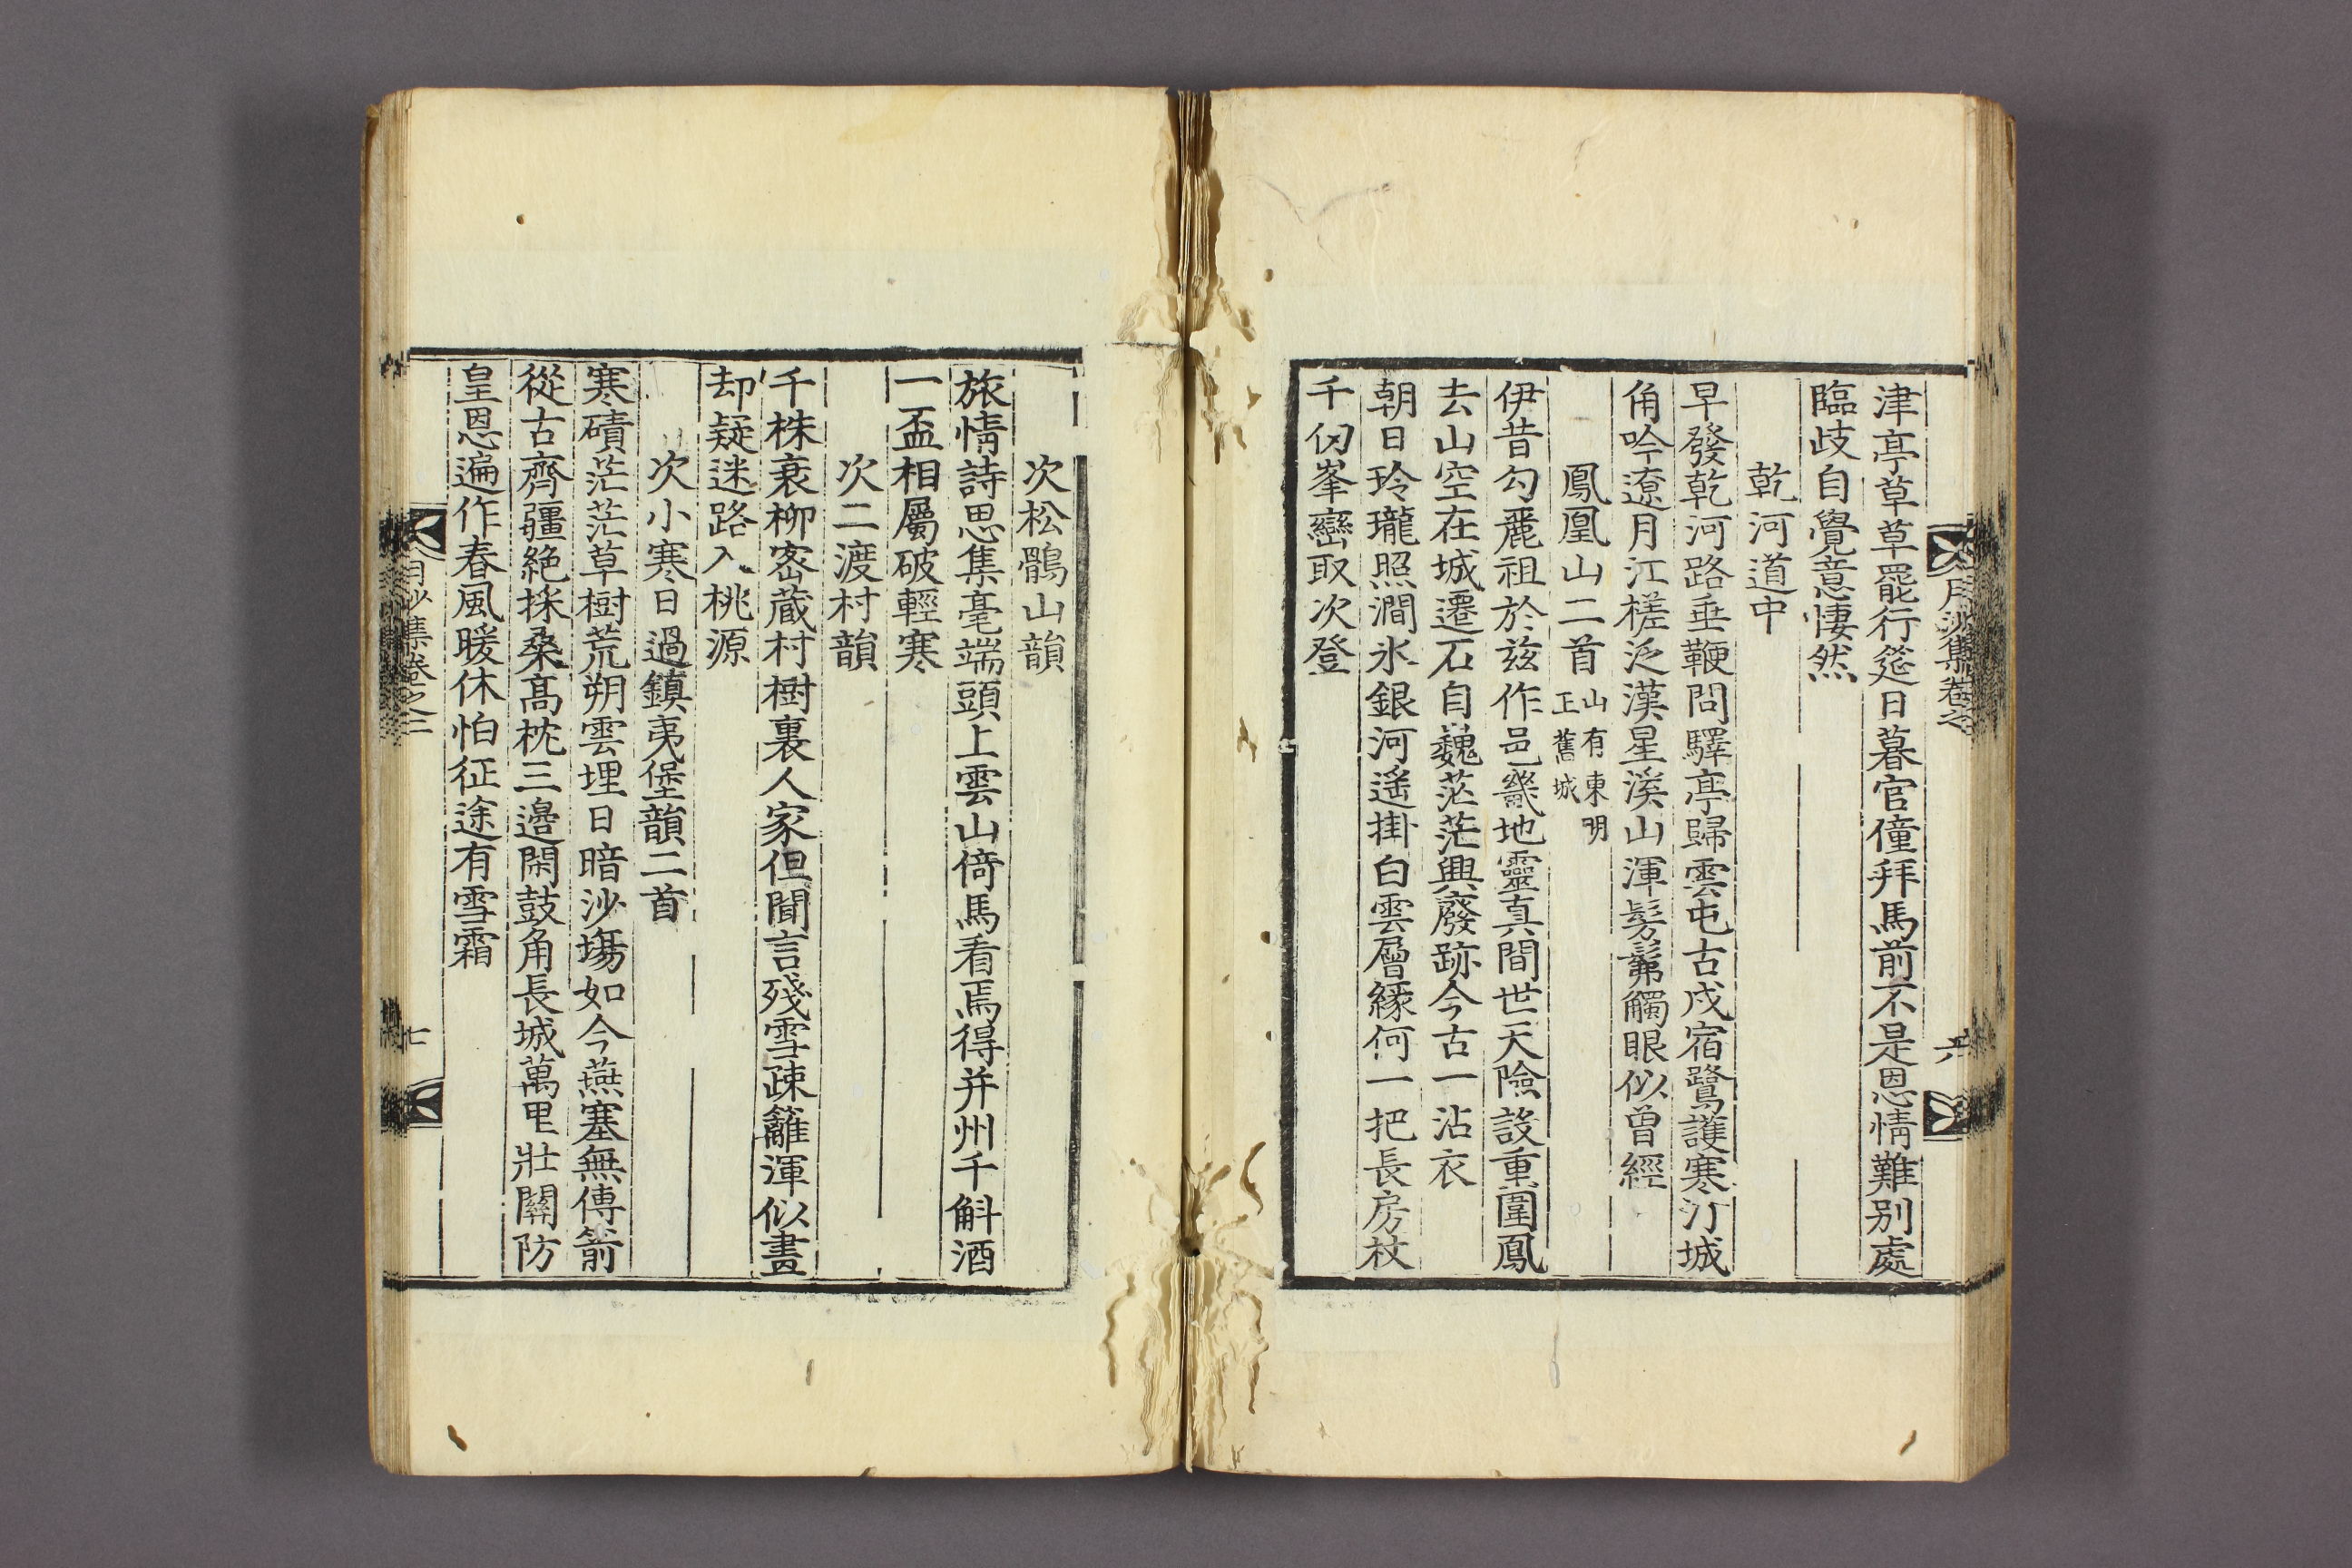 月沙集卷之
六
津亭草草罷行筵日暮官僮拜馬前不是恩情難別處
臨歧自覺意悽然
乾河道中
早發乾河路垂鞭問驛亭歸雲屯古戍宿鷺護寒汀城
角吟遼月江槎泛漢星溪山渾髣髴觸眼似曾經
鳳凰山二首山有東明
正舊城
伊昔勾麗祖於玆作邑畿地靈真間世天險設重圍鳳
去山空在城遷石自巍茫茫興廢跡今古一沾衣
朝日玲瓏照澗氷銀河遙掛白雲層緣何一把長房杖
千仞峯巒取次登
次松鶻山韻
旅情詩思集毫端頭上雲山倚馬看焉得并州千斛酒
一盃相屬破輕寒
次二渡村韻
千株衰柳密藏村樹裏人家但聞言殘雪疎籬渾似畫
却疑迷路入桃源
次小寒日過鎮夷堡韻二首
寒磧茫茫草樹荒朔雲埋日暗沙塲如今燕塞無傳箭
從古齊疆絶採桑高枕三邊閑鼓角長城萬里壯關防
皇恩遍作春風暖休怕征途有雪霜
月沙集卷之二
七